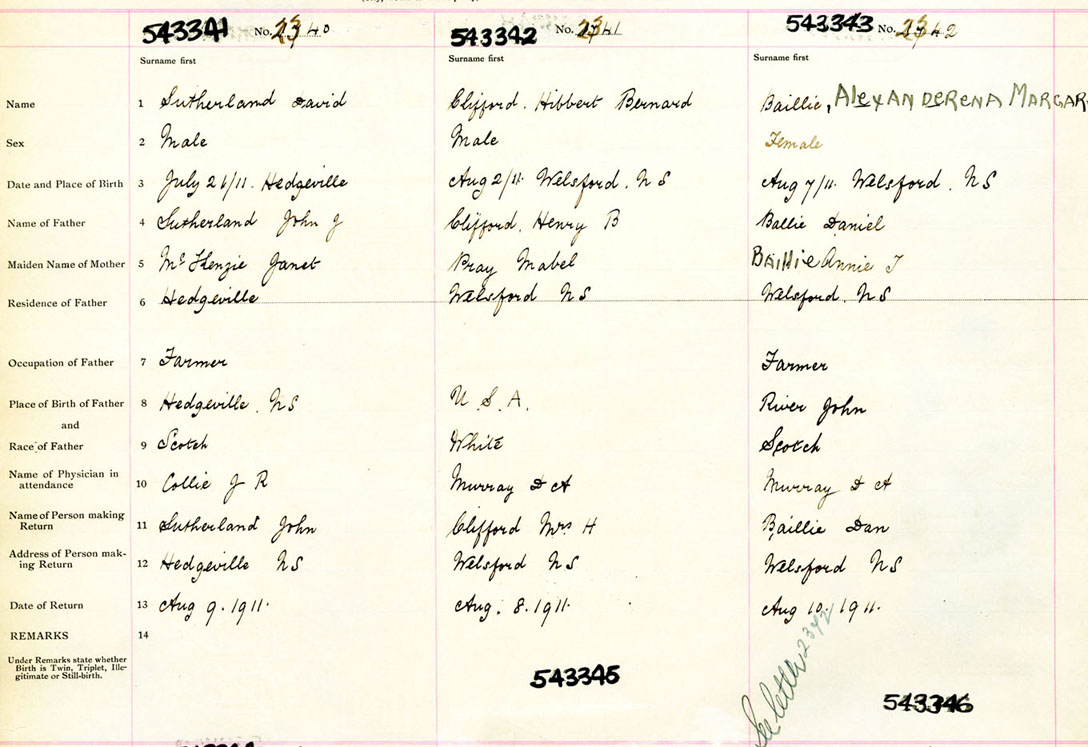 543341 No. 2340 543342 No. 2341 543343 No. 2342
Surname first Surname first Surname first
Name 1 Sutherland David Clifford. Hibbert Bernard Baillie, AlexANDERENA MARGAR
Sex 2 Male Male Female
Date and Place of Birth 3 July 26/11. Hedgeville Aug 2/11. Welsford. NS Aug 7/11. Welsford. NS
Name of Father 4 Sutherland John J Clifford. Henry B Ballie Daniel
Maiden Name of Mother 5 McKenzie Janet Bray Mabel BAillie Annie J
Residence of Father 6 Hedgeville Welsford NS Welsford. NS
Occupation of Father 7 Farmer Farmer
Place of Birth of Father 8 Hedgeville. NS U.S.A. River John
and
Race of Father 9 Scotch White Scotch
Name of Physician in
attendance 10 Collie J R Murray D A Murray D A
Name of Person making
Return 11 Sutherland John Clifford Mrs H Baillie Dan
Address of Person mak-
ing Return 12 Hedgeville NS Welsford NS Welsford NS
Date of Return 13 Aug 9. 1911. Aug. 8. 1911. Aug 10. 1911.
REMARKS 14
Under Remarks state whether
Birth is Twin, Triplet, Ille-
gitimate or Still-birth.
See letter 2342
543345 543346